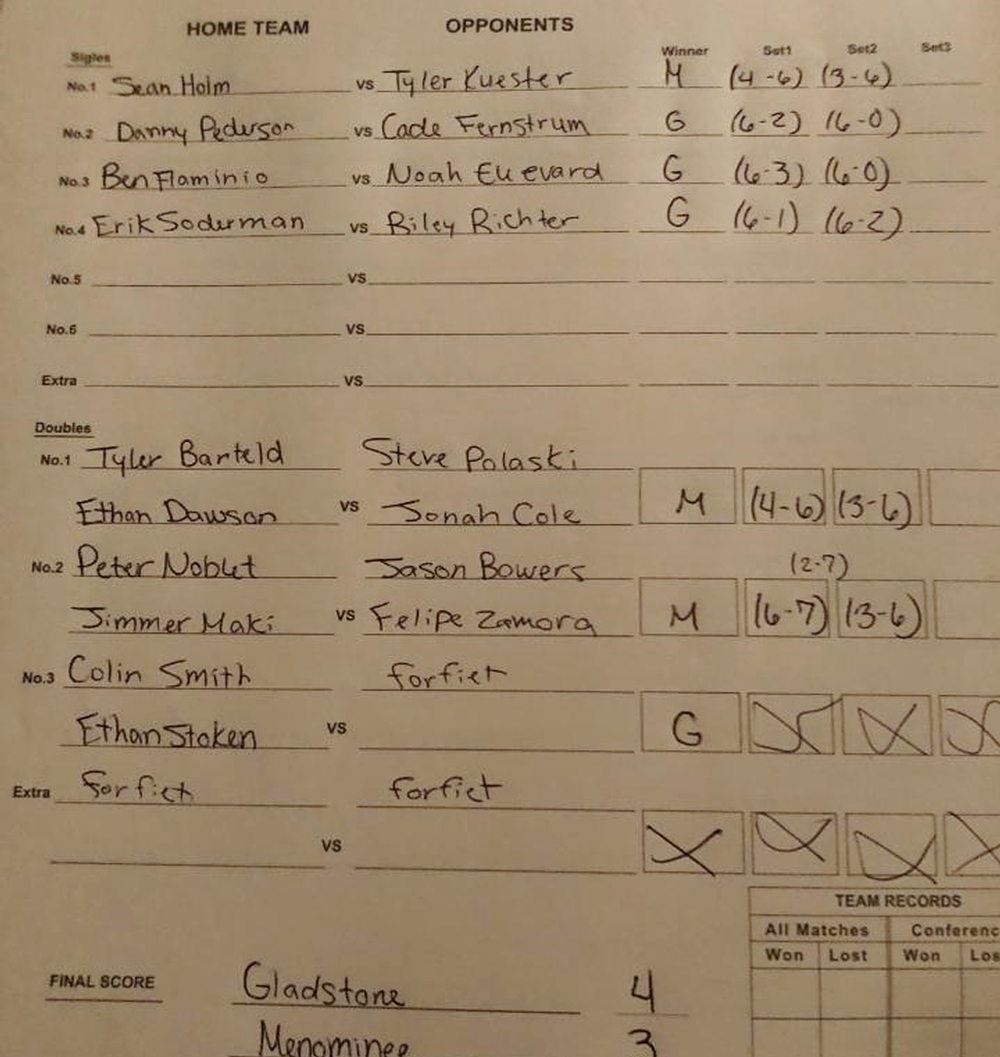 HOME TEAM OPPONENTS
Sigles Winner Set1 Set2 Set3
No.1 Sean Holm vs Tyler Kuester M (4-6) (3-6)
No.2 Danny Pederson vs Cade Fernstrum G (6-2) (6-0)
No.3 Ben Flaminio vs Noah Eu evard G (6-3) (6-0)
No.4 Erik Soderman vs Riley Richter G (6-1) (6-2)
No.5 vs
No.6 vs
Extra vs
Doubles
No.1 Tyler Barteld Steve Polaski
Ethan Dawson vs Jonah Cole M (4-6) (3-6)
No.2 Peter Noblet Jason Bowers (2-7)
Jimmer Maki vs Felipe Zamora M (6-7) (3-6)
No.3 Colin Smith forfiet
Ethan Stoken vs G
Extra forfiet forfiet
vs
TEAM RECORDS
All Matches Conferenc
Won Lost Won Los
FINAL SCORE Gladstone 4
Menominee 3